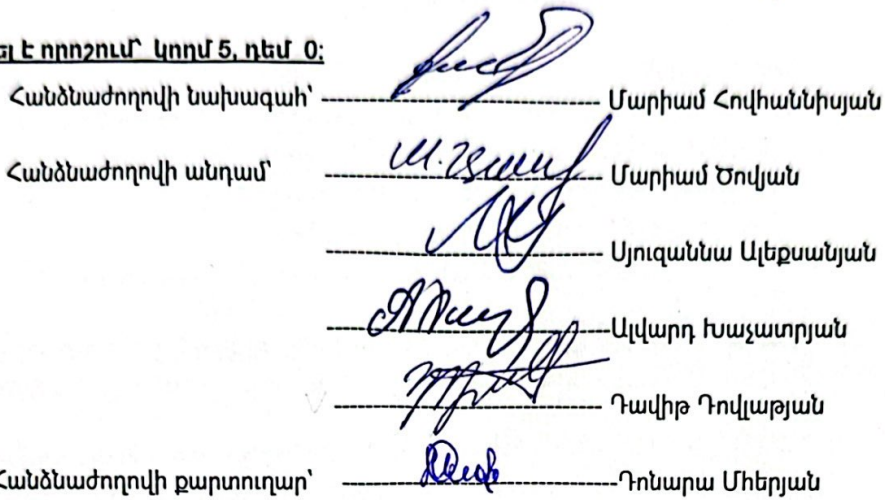 է որոշում՝ կողմ 5, դեմ 0:
Հանձնաժողովի նախագահ՝ ---------------------------------- Մարիամ Հովհաննիսյան
Հանձնաժողովի անդամ՝ ---------------------------------- Մարիամ Ծովյան
---------------------------------- Սյուզաննա Ալեքսանյան
---------------------------------- Ալվարդ Խաչատրյան
---------------------------------- Դավիթ Դովլաթյան
Հանձնաժողովի քարտուղար՝ ----------------------------------Դոնարա Մհերյան